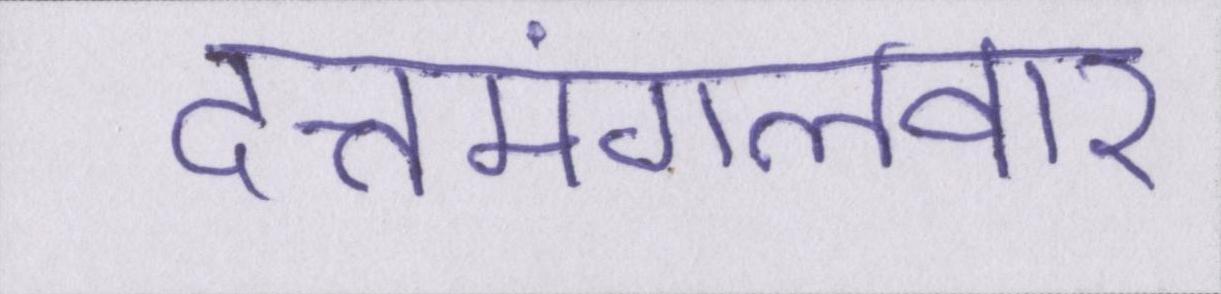 दत्तमंगलवार